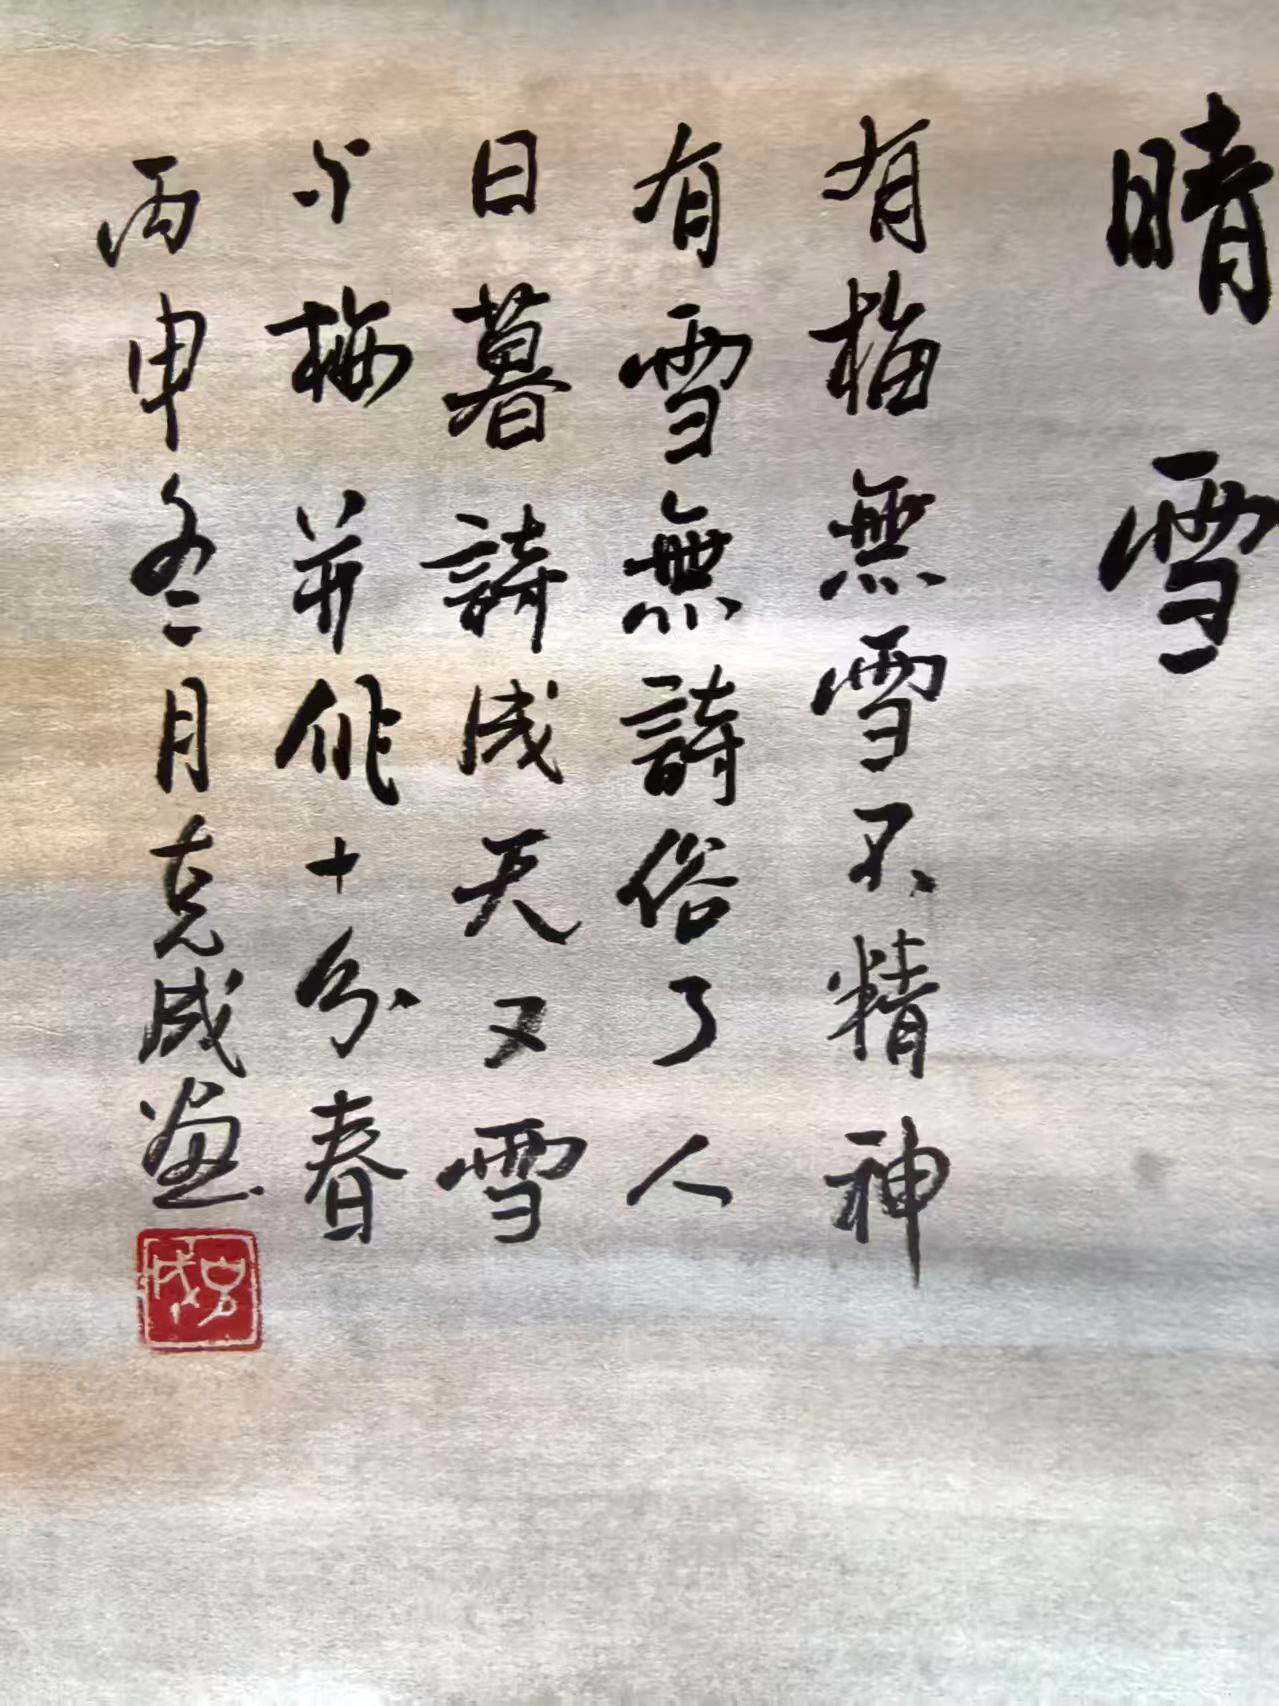 晴雪
有梅無雪不精神
有雪無詩俗了人
日暮詩成天又雪
与梅并作十分春
丙申冬二月克成画